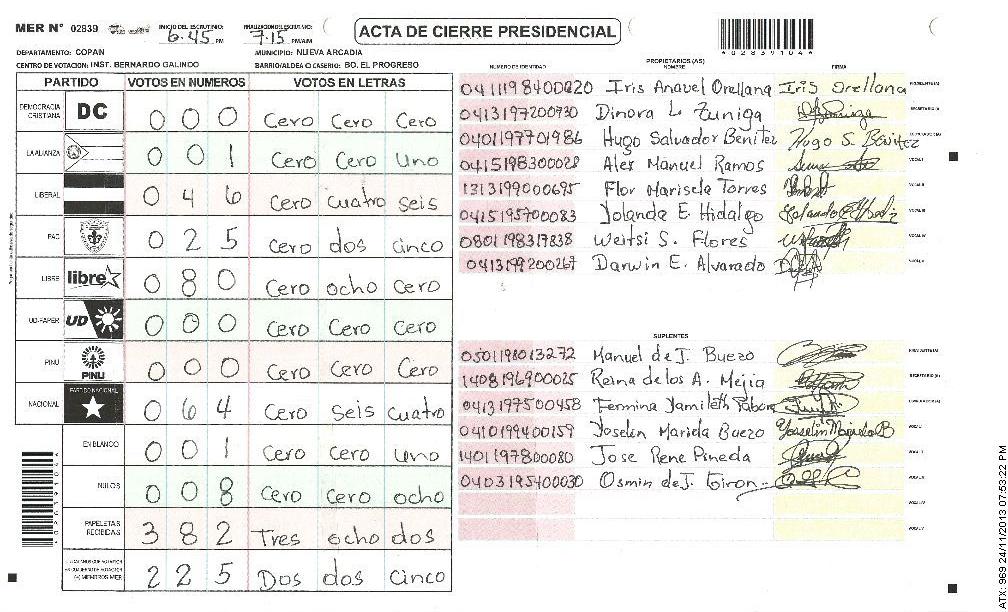 MER N° 02839 INICIO DEL ESCRUTINIO: 6:45 PM FINALIZACION DEL ESCRUTINIO: 7:15 PM/AM
ACTA DE CIERRE PRESIDENCIAL
DEPARTAMENTO: COPAN MUNICIPIO: NUEVA ARCADIA
CENTRO DE VOTACION: INST. BERNARDO GALINDO BARRIO/ALDEA O CASERIO: BO. EL PROGRESO
PARTIDO VOTOS EN NUMEROS VOTOS EN LETRAS
DEMOCRACIA CRISTIANA DC 0 0 0 Cero Cero Cero
LA ALIANZA 0 0 1 Cero Cero Uno
LIBERAL 0 4 6 Cero cuatro seis
PAC 0 2 5 Cero dos cinco
LIBRE libre 0 8 0 Cero ocho Cero
UD-FAPER UD 0 0 0 Cero Cero Cero
PINU PINU 0 0 0 Cero Cero Cero
NACIONAL PARTIDO NACIONAL 0 6 4 Cero seis cuatro
EN BLANCO 0 0 1 Cero Cero uno
NULOS 0 0 8 Cero Cero ocho
PAPELETAS RECIBIDAS 3 8 2 Tres ocho dos
2 2 5 Dos dos cinco
PROPIETARIOS (AS)
NUMERO DE IDENTIDAD NOMBRE FIRMA
0411198400020 Iris Anavel Orellana Iris Orellana
0413197200730 Dinora L. Zuniga
0401197701986 Hugo Salvador Benitez Hugo S. Benitez
0415198300028 Alex Manuel Ramos
1313199000695 Flor Marisela Torres
0415195700083 Yolanda E. Hidalgo
0801198317838 Weitsi S. Flores
0413199200267 Darwin E. Alvarado
SUPLENTES
0501198013272 Manuel de J. Buezo
1408196900025 Reina de los A. Mejia
0413197500458 Fermina Yamileth
0410199400159 Joselin Mariela Buezo
1401197800080 Jose Rene Pineda
0403195400030 Osmin de J. Giron
4028391044
ATX: 969 24/11/2013 07:53:22 PM